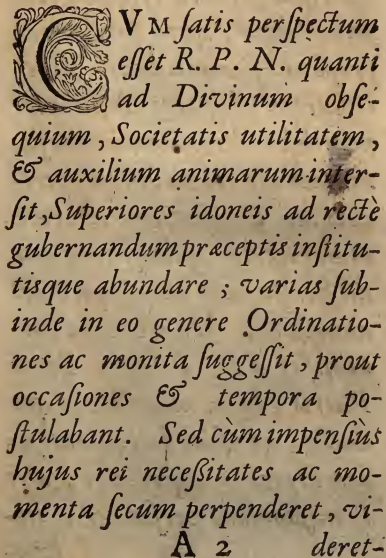 CVM ſatis perſpectum
eſſet R. P. N. quanti
ad Divinum obſe-
quium, Societatis utilitatem,
& auxilium animarum inter-
ſit, Superiores idoneis ad rectè
gubernandum præceptis inſtitu-
tisque abundare; varias ſub-
inde in eo genere Ordinatio-
nes ac monita ſuggeſſit, prout
occaſiones & tempora po-
ſtulabant. Sed cùm impenſiùs
hujus rei neceßitates ac mo-
menta ſecum perpenderet, vi-
A 2 deret-